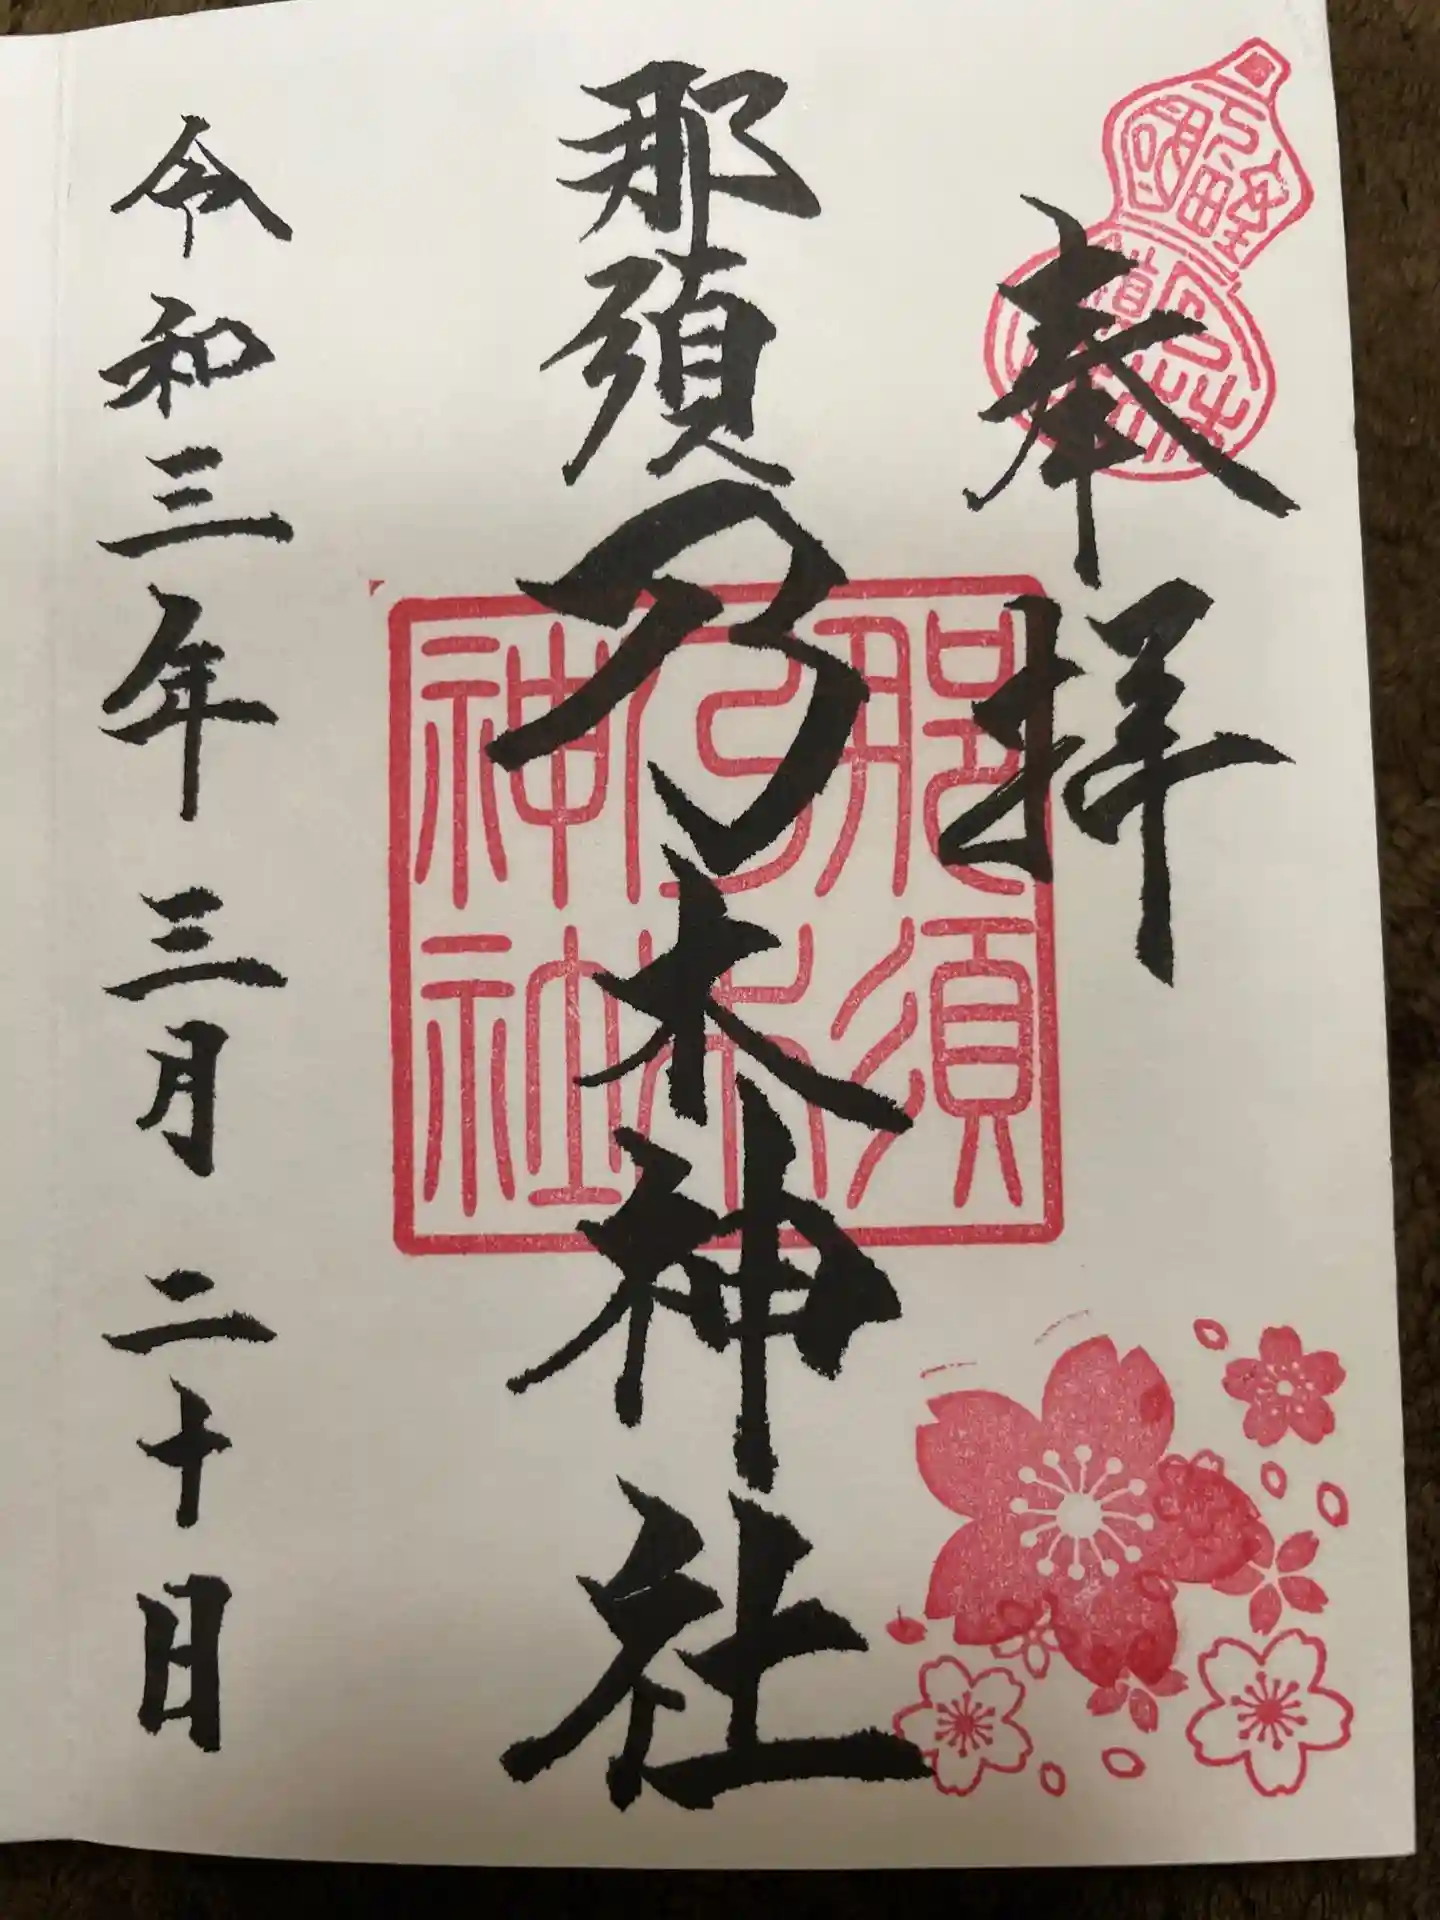 奉拝
那須乃木神社
那須
乃木
神社
令和三年三月二十日